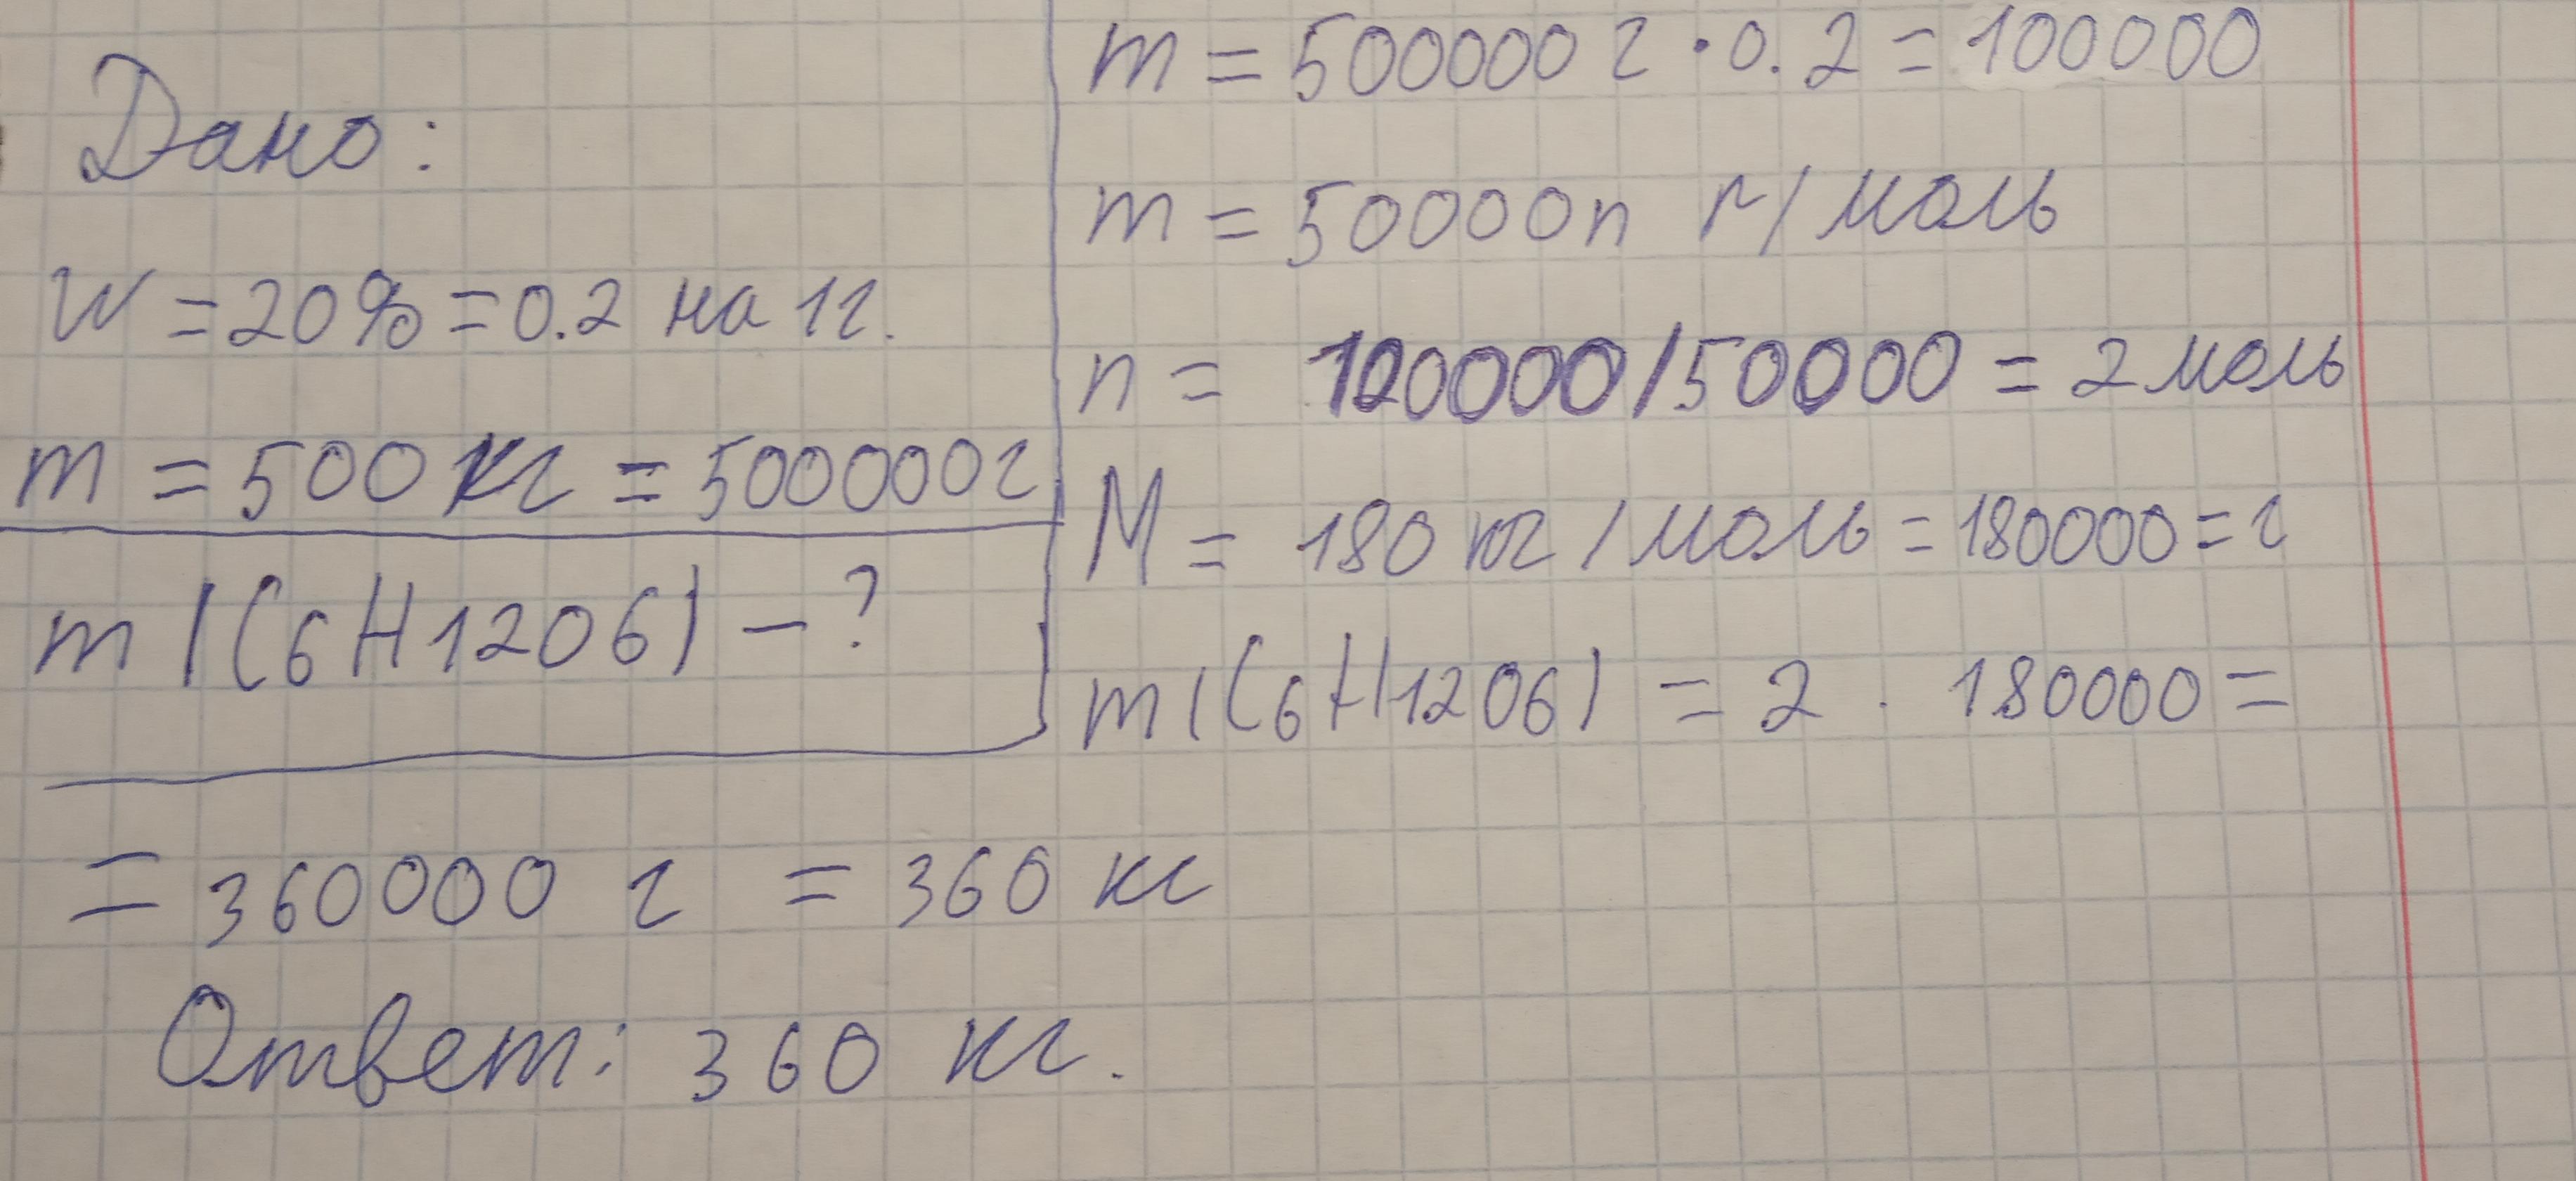 Дано:
W = 20% = 0.2 на 1г.
m = 500 кг = 500000г
m (C6H12O6) - ?
m = 500000 г · 0.2 = 100000
m = 50000n г/моль
n = 100000/50000 = 2 моль
M = 180 кг/моль = 180000 = г
m (C6H12O6) = 2 · 180000 =
= 360000 г = 360 кг
Ответ: 360 кг.